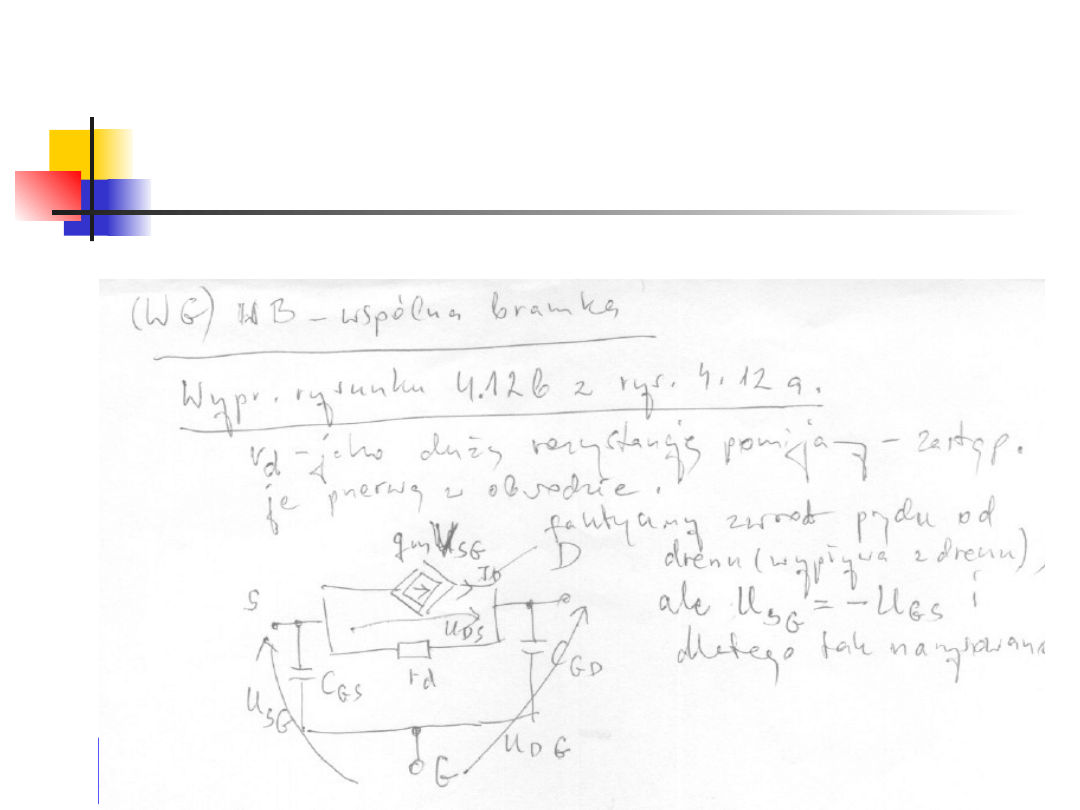 (WG) WB – wspólna bramka
Wypr. rysunku 4.12b z rys. 4.12a.
rd – jako dużą rezystancję pomijamy – zastęp.
je przerwą w obwodzie.
faktyczny zwrot prądu od
drenu (wypływa z drenu),
ale USG = –UGS i
dlatego tak narysowano
gmUSG
ID
D
S
UDS
rd
CGS
CGD
USG
UDG
G